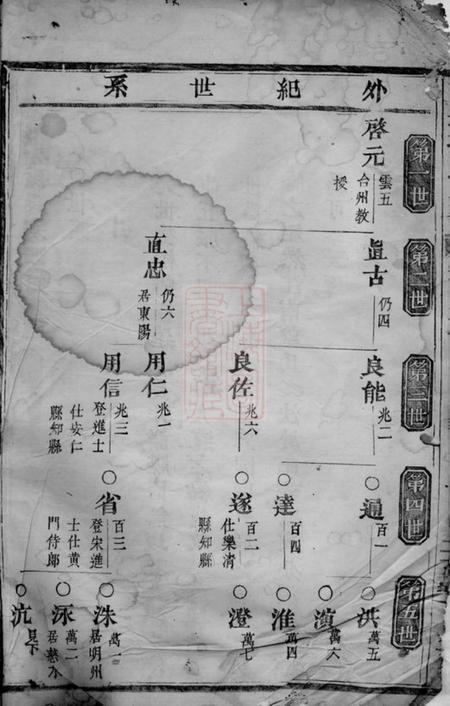 外紀世系
第一世
啓元
雲五
台州教
授
第二世
眞古
仍四
直忠
仍六
居東陽
第三世
良能
兆二
良佐
兆六
用仁
兆一
用信
兆三
登進士
仕安仁
縣知縣
第四世
○通
百一
○達
百四
○遂
百二
仕樂清
縣知縣
○省
百三
登宋進
士仕黃
門侍郎
第五世
○洪
萬五
○演
萬六
○淮
萬四
○澄
萬七
○洙
萬一
居明州
○泳
萬二
居慈水
○沆
見下